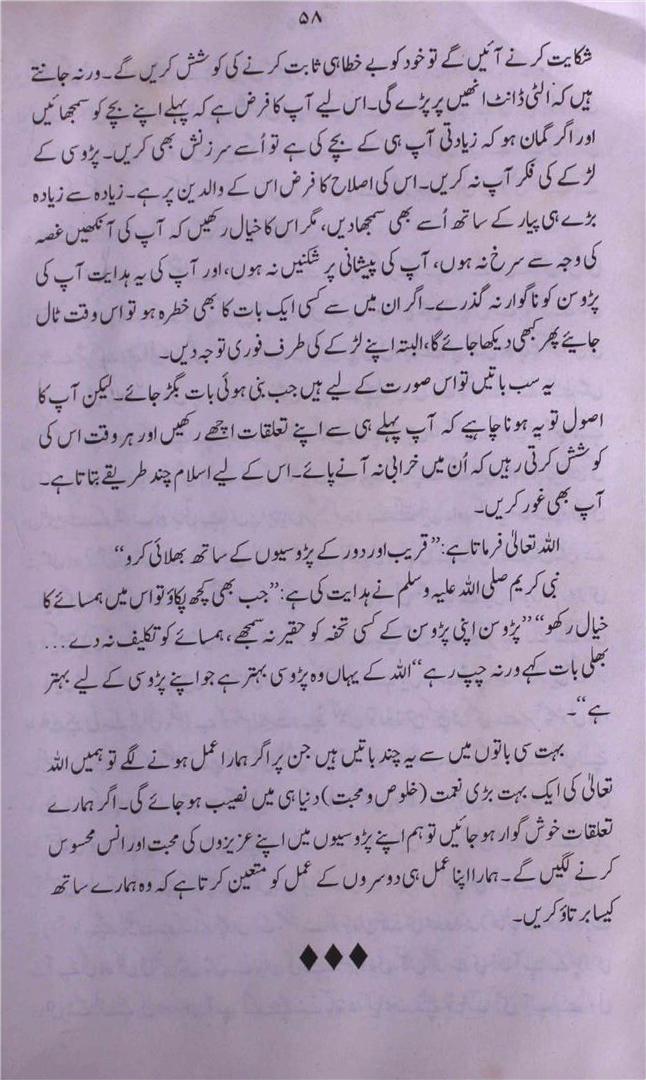 ۵۸
شکایت کرنے آئیں گے تو خود کو بے خطا ہی ثابت کرنے کی کوشش کریں گے۔ ورنہ جانتے
ہیں کہ الٹی ڈانٹ انھیں پر پڑے گی۔ اس لیے آپ کا فرض ہے کہ پہلے اپنے بچے کو سمجھائیں
اور اگر گمان ہو کہ زیادتی آپ ہی کے بچے کی ہے تو اُسے سرزنش بھی کریں۔ پڑوسی کے
لڑکے کی فکر آپ نہ کریں۔ اس کی اصلاح کا فرض اس کے والدین پر ہے۔ زیادہ سے زیادہ
بڑے ہی پیار کے ساتھ اُسے بھی سمجھا دیں، مگر اس کا خیال رکھیں کہ آپ کی آنکھیں غصہ
کی وجہ سے سرخ نہ ہوں، آپ کی پیشانی پر شکنیں نہ ہوں، اور آپ کی یہ ہدایت آپ کی
پڑوسن کو ناگوار نہ گذرے۔ اگر ان میں سے کسی ایک بات کا بھی خطرہ ہو تو اس وقت ٹال
جایئے پھر کبھی دیکھا جائے گا، البتہ اپنے لڑکے کی طرف فوری توجہ دیں۔
یہ سب باتیں تو اس صورت کے لیے ہیں جب بنی ہوئی بات بگڑ جائے۔ لیکن آپ کا
اصول تو یہ ہونا چاہیے کہ آپ پہلے ہی سے اپنے تعلقات اچھے رکھیں اور ہر وقت اس کی
کوشش کرتی رہیں کہ اُن میں خرابی نہ آنے پائے۔ اس کے لیے اسلام چند طریقے بتاتا ہے۔
آپ بھی غور کریں۔
اللہ تعالیٰ فرماتا ہے: ’’قریب اور دور کے پڑوسیوں کے ساتھ بھلائی کرو‘‘
نبی کریم صلی اللہ علیہ وسلم نے ہدایت کی ہے: ’’جب بھی کچھ پکاؤ تو اس میں ہمسائے کا
خیال رکھو‘‘ ’’پڑوسن اپنی پڑوسن کے کسی تحفہ کو حقیر نہ سمجھے، ہمسائے کو تکلیف نہ دے...
بھلی بات کہے ورنہ چپ رہے‘‘ اللہ کے یہاں وہ پڑوسی بہتر ہے جو اپنے پڑوسی کے لیے بہتر
ہے‘‘۔
بہت سی باتوں میں سے یہ چند باتیں ہیں جن پر اگر ہمارا عمل ہونے لگے تو ہمیں اللہ
تعالیٰ کی ایک بہت بڑی نعمت (خلوص و محبت) دنیا ہی میں نصیب ہو جائے گی۔ اگر ہمارے
تعلقات خوش گوار ہو جائیں تو ہم اپنے پڑوسیوں میں اپنے عزیزوں کی محبت اور انس محسوس
کرنے لگیں گے۔ ہمارا اپنا عمل ہی دوسروں کے عمل کو متعین کرتا ہے کہ وہ ہمارے ساتھ
کیسا برتاؤ کریں۔